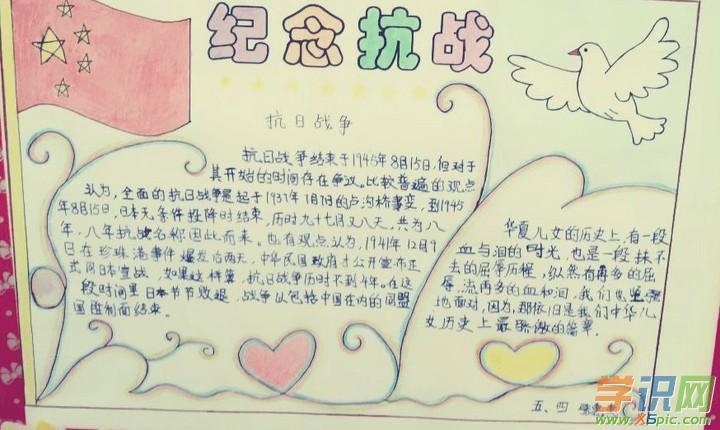 纪念抗战
抗日战争
抗日战争结束于1945年8月15日,但对于
其开始的时间存在争议。比较普遍的观点
认为,全面的抗日战争是起于1937年7月7日的卢沟桥事变,到1945
年8月15日,日本无条件投降时结束,历时九十七月又八天,共为八
年,八年抗战名称因此而来。也有观点认为,1941年12月9
日在珍珠港事件爆发后两天,中华民国政府才公开宣布正
式向日本宣战,如果这样算,抗日战争历时不到4年。在这
段时间里日本节节败退,战争以包括中国在内的同盟
国胜利而结束。
华夏儿女的历史上,有一段
血与泪的时光,也是一段抹不
去的屈辱历程,纵然有再多的屈
辱,流再多的血和泪,我们也坚强
地面对,因为,那依旧是我们中华儿
女历史上最骄傲的篇章。
五、四
学识网
www.X5pic.com